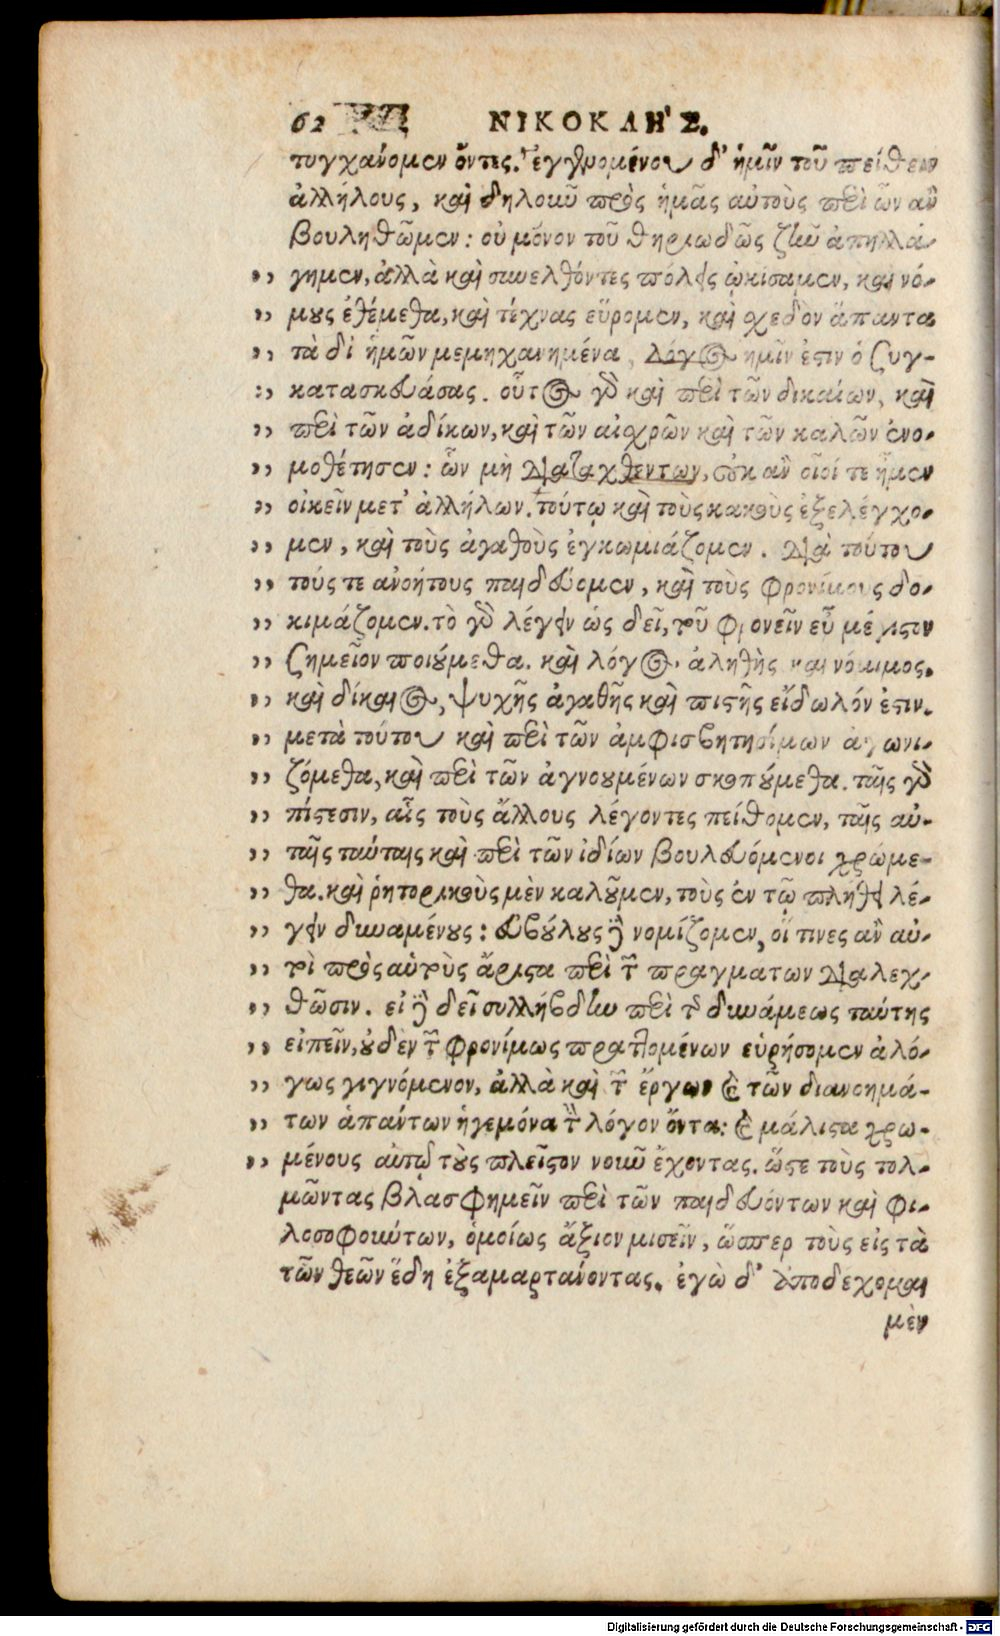 62 ΝΙΚΟΚΛΗ'Σ.
τυγχάνομεν ὄντες. ἐγγενομένου δ' ἡμῖν τοῦ πείθειν
ἀλλήλους, καὶ δηλοῦν πρὸς ἡμᾶς αὐτοὺς περὶ ὧν ἂν
βουληθῶμεν: οὐ μόνον τοῦ θηριωδῶς ζῆν ἀπηλλά-
,, γημεν, ἀλλὰ καὶ συνελθόντες πόλεις ᾠκίσαμεν, καὶ νό-
,, μους ἐθέμεθα, καὶ τέχνας εὕρομεν, καὶ σχεδὸν ἅπαντα
,, τὰ δι ἡμῶν μεμηχανημένα, λόγος ἡμῖν ἐστιν ὁ συγ-
,, κατασκευάσας. οὗτος γὰρ καὶ περὶ τῶν δικαίων, καὶ
,, περὶ τῶν ἀδίκων, καὶ τῶν αἰσχρῶν καὶ τῶν καλῶν ἐνο-
,, μοθέτησεν: ὧν μὴ διαταχθεντων, οὐκ ἂν οἷοί τε ἦμεν
,, οἰκεῖν μετ' ἀλλήλων. τούτῳ καὶ τοὺς κακοὺς ἐξελέγχο-
,, μεν, καὶ τοὺς ἀγαθοὺς ἐγκωμιάζομεν. διὰ τούτου
,, τούς τε ἀνοήτους παιδεύομεν, καὶ τοὺς φρονίμους δο-
,, κιμάζομεν. τὸ γὰρ λέγειν ὡς δεῖ, τοῦ φρονεῖν εὖ μέγιστον
,, σημεῖον ποιούμεθα. καὶ λόγος ἀληθὴς καὶ νόμιμος,
,, καὶ δίκαιος, ψυχῆς ἀγαθῆς καὶ πιστῆς εἴδωλόν ἐστιν.
,, μετὰ τούτου καὶ περὶ τῶν ἀμφισβητησίμων ἀγωνι-
,, ζόμεθα, καὶ περὶ τῶν ἀγνοουμένων σκοπούμεθα. ταῖς γὰρ
,, πίστεσιν, αἷς τοὺς ἄλλους λέγοντες πείθομεν, ταῖς αὐ-
,, ταῖς ταύταις καὶ περὶ τῶν ἰδίων βουλευόμενοι χρώμε-
,, θα. καὶ ῥητορικοὺς μὲν καλοῦμεν, τοὺς ἐν τῷ πλήθει λέ-
,, γειν δυναμένους: εὐβούλους δὲ νομίζομεν, οἵ τινες ἂν αὐ-
,, τοὶ πρὸς αὑτοὺς ἄριστα περὶ τῶν πραγματων διαλεχ-
,, θῶσιν. εἰ δὲ δεῖ συλλήβδην περὶ τῆς δυνάμεως ταύτης
,, εἰπεῖν, οὐδὲν τῶν φρονίμως πραττομένων εὑρήσομεν ἀλό-
,, γως γιγνόμενον, ἀλλὰ καὶ τῶν ἔργων καὶ τῶν διανοημά-
,, των ἁπάντων ἡγεμόνα τὸν λόγον ὄντα: καὶ μάλιστα χρω-
,, μένους αὐτῷ τοὺς πλεῖστον νοῦν ἔχοντας. ὥστε τοὺς τολ-
μῶντας βλασφημεῖν περὶ τῶν παιδευόντων καὶ φι-
λοσοφούντων, ὁμοίως ἄξιον μισεῖν, ὥσπερ τοὺς εἰς τὰ
τῶν θεῶν ἕδη ἐξαμαρτάνοντας. ἐγὼ δ' ἀποδεχομαι
μὲν
Digitalisierung gefördert durch die Deutsche Forschungsgemeinschaft - DFG